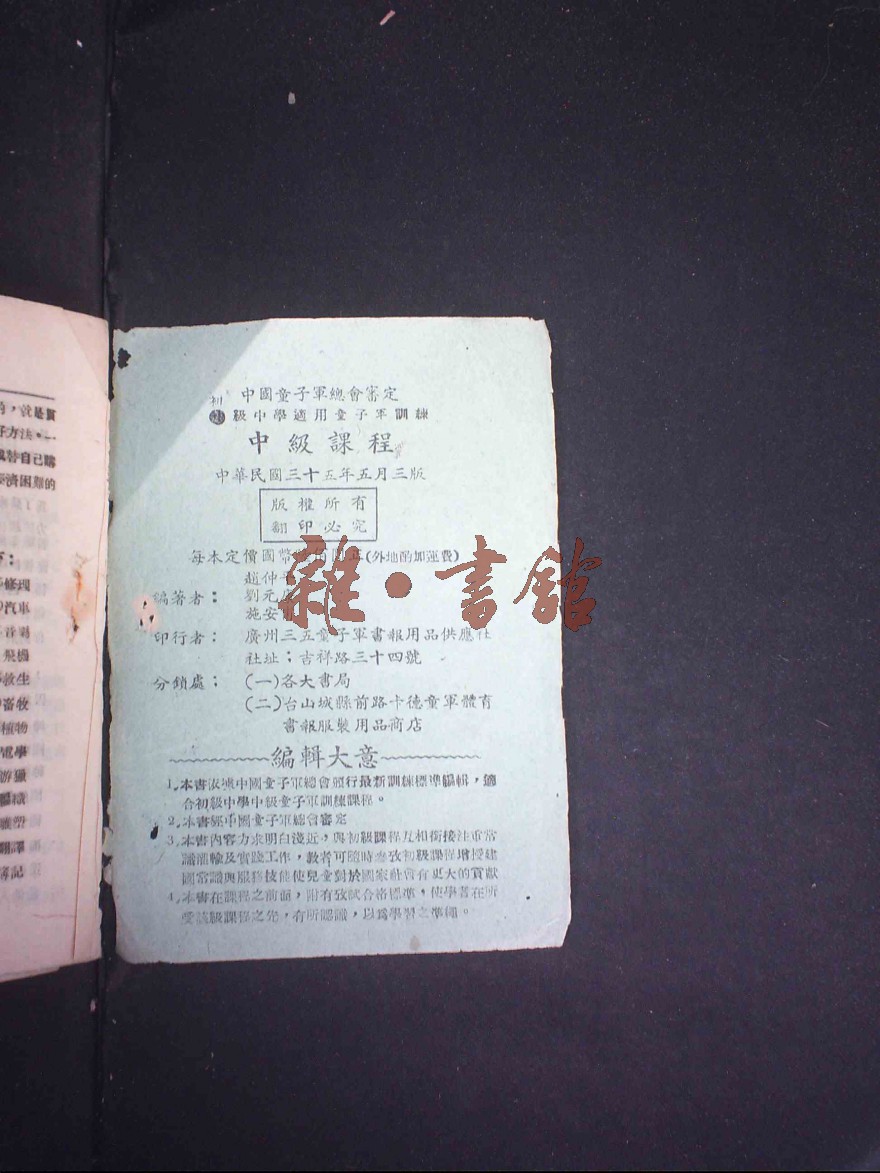 的，就是買
好方法。一
或替自己購
經濟困難的
修理
汽車
音樂
飛機
救生
畜牧
植物
電學
游獵
翻譯
簿記
中國童子軍總會審定
初級中學適用童子軍訓練
中級課程
中華民國三十五年五月三版
版權所有
翻印必究
每本定價國幣 佰 (外地酌加運費)
編著者：
趙仲
劉元
施安
印行者： 廣州三五童子軍書報用品供應社
社址；吉祥路三十四號
分銷處； (一)各大書局
(二)台山城縣前路卡德童軍體育
書報服裝用品商店
編輯大意
1.本書依據中國童子軍總會頒行最新訓練標準編輯，適
合初級中學中級童子軍訓練課程。
2.本書經中國童子軍總會審定
3.本書內容力求明白淺近，與初級課程互相銜接注重常
識灌輸及實踐工作，教者可隨時參攷初級課程增授建
國常識與服務技能使兒童對於國家社會有更大的貢獻
4.本書在課程之前面，附有攷試合格標準，使學者在所
受該級課程之先，有所認識，以為學習之準繩。
雜·書館